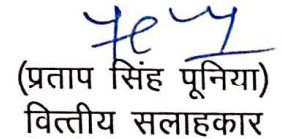 (प्रताप सिंह पूनिया)
वित्तीय सलाहकार